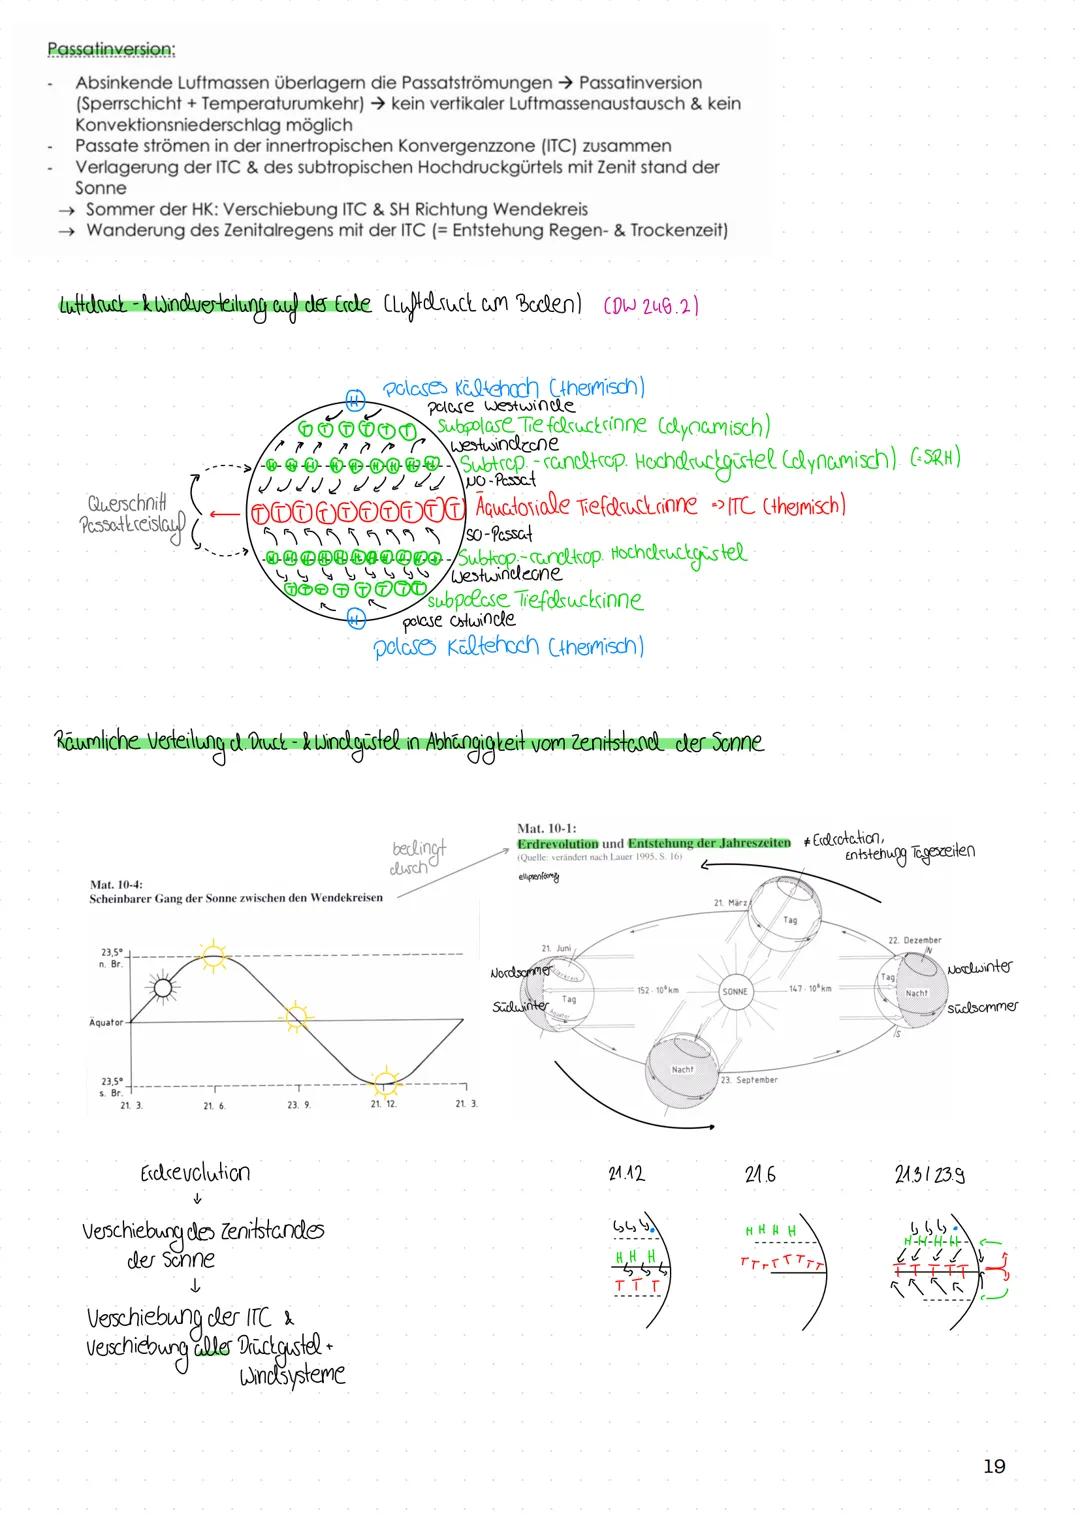 Passatinversion:
- Absinkende Luftmassen überlagern die Passatströmungen → Passatinversion
(Sperrschicht + Temperaturumkehr) → kein vertikaler Luftmassenaustausch & kein
Konvektionsniederschlag möglich
- Passate strömen in der innertropischen Konvergenzzone (ITC) zusammen
- Verlagerung der ITC & des subtropischen Hochdruckgürtels mit Zenit stand der
Sonne
→ Sommer der HK: Verschiebung ITC & SH Richtung Wendekreis
→ Wanderung des Zenitalregens mit der ITC (= Entstehung Regen- & Trockenzeit)
Luftdruck - & Windverteilung auf der Erde (Luftdruck am Boden) (DW 246.2)
H
polares Kältehoch (thermisch)
polare Westwinde
T T T T T T
Subpolare Tiefdruckrinne (dynamisch)
Westwindzone
H H H H H H H H
Subtrop.-randtrop. Hochdruckgürtel (dynamisch) (=SRH)
NO-Passat
Querschnitt
Passatkreislauf
T T T T T T T T T T
Äquatoriale Tiefdruckrinne => ITC (thermisch)
SO-Passat
Subtrop.-randtrop. Hochdruckgürtel
Westwindzone
subpolare Tiefdruckrinne
polare Ostwinde
H
polares Kältehoch (thermisch)
Räumliche Verteilung d. Druck- & Windgürtel in Abhängigkeit vom Zenitstand der Sonne
bedingt
durch
Mat. 10-4:
Scheinbarer Gang der Sonne zwischen den Wendekreisen
23,5°
n. Br.
Äquator
23,5°
s. Br.
21. 3. 21. 6. 23. 9. 21. 12. 21. 3.
Mat. 10-1:
Erdrevolution und Entstehung der Jahreszeiten
≠ Erdrotation,
Entstehung Tageszeiten
(Quelle: verändert nach Lauer 1995, S. 16)
ellipsenförmig
21. März
Tag
21. Juni
22. Dezember
N
Nordsommer
Südwinter
Tag
Äquator
152 · 10⁶ km
SONNE
147 · 10⁶ km
Tag
Nacht
Nordwinter
Südsommer
S
Nacht
23. September
Erdrevolution
↓
Verschiebung des Zenitstandes
der Sonne
↓
Verschiebung der ITC &
Verschiebung aller Druckgürtel +
Windsysteme
21.12 21.6 21.3 / 23.9
H H H
T T T
H H H H
T T T T T T T
H-H-H-H
T T T T T
19